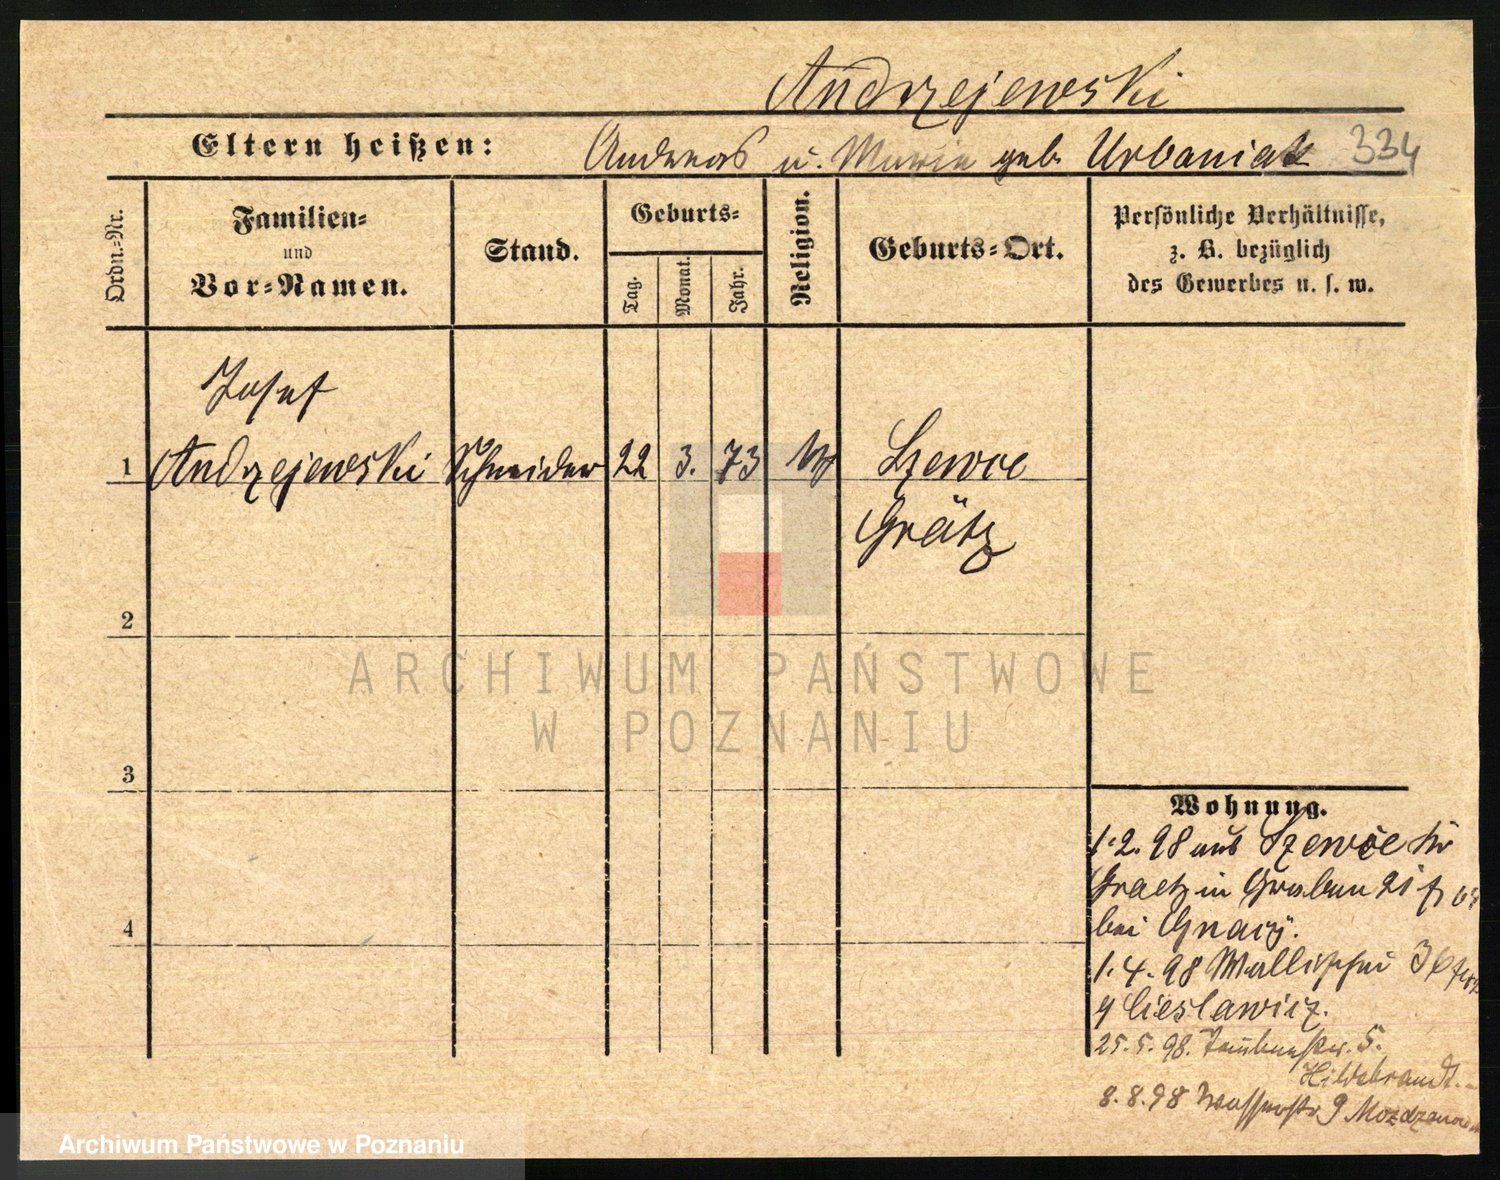 Andrzejewski
Eltern heißen: Andreas u. Maria geb. Urbaniak 334
Ordn.-Nr.
Familien-
und
Vor-Namen.
Stand.
Geburts-
Tag.
Monat.
Jahr.
Religion.
Geburts-Ort.
Persönliche Verhältnisse,
z. B. bezüglich
des Gewerbes u. s. w.
Josef
1 Andrzejewski Schneider 22 3. 73 Szewce
Grätz
2
3
4
Wohnung.
1.2.98 aus Szewce Kr
Graetz in Graben 21
bei
1.4.98 Wallischei 36
Cieslawicz.
25.5.98. Taubenstr. 5.
Hildebrandt.
8.8.98 Wasserstr 9
ARCHIWUM PAŃSTWOWE
W POZNANIU
Archiwum Państwowe w Poznaniu